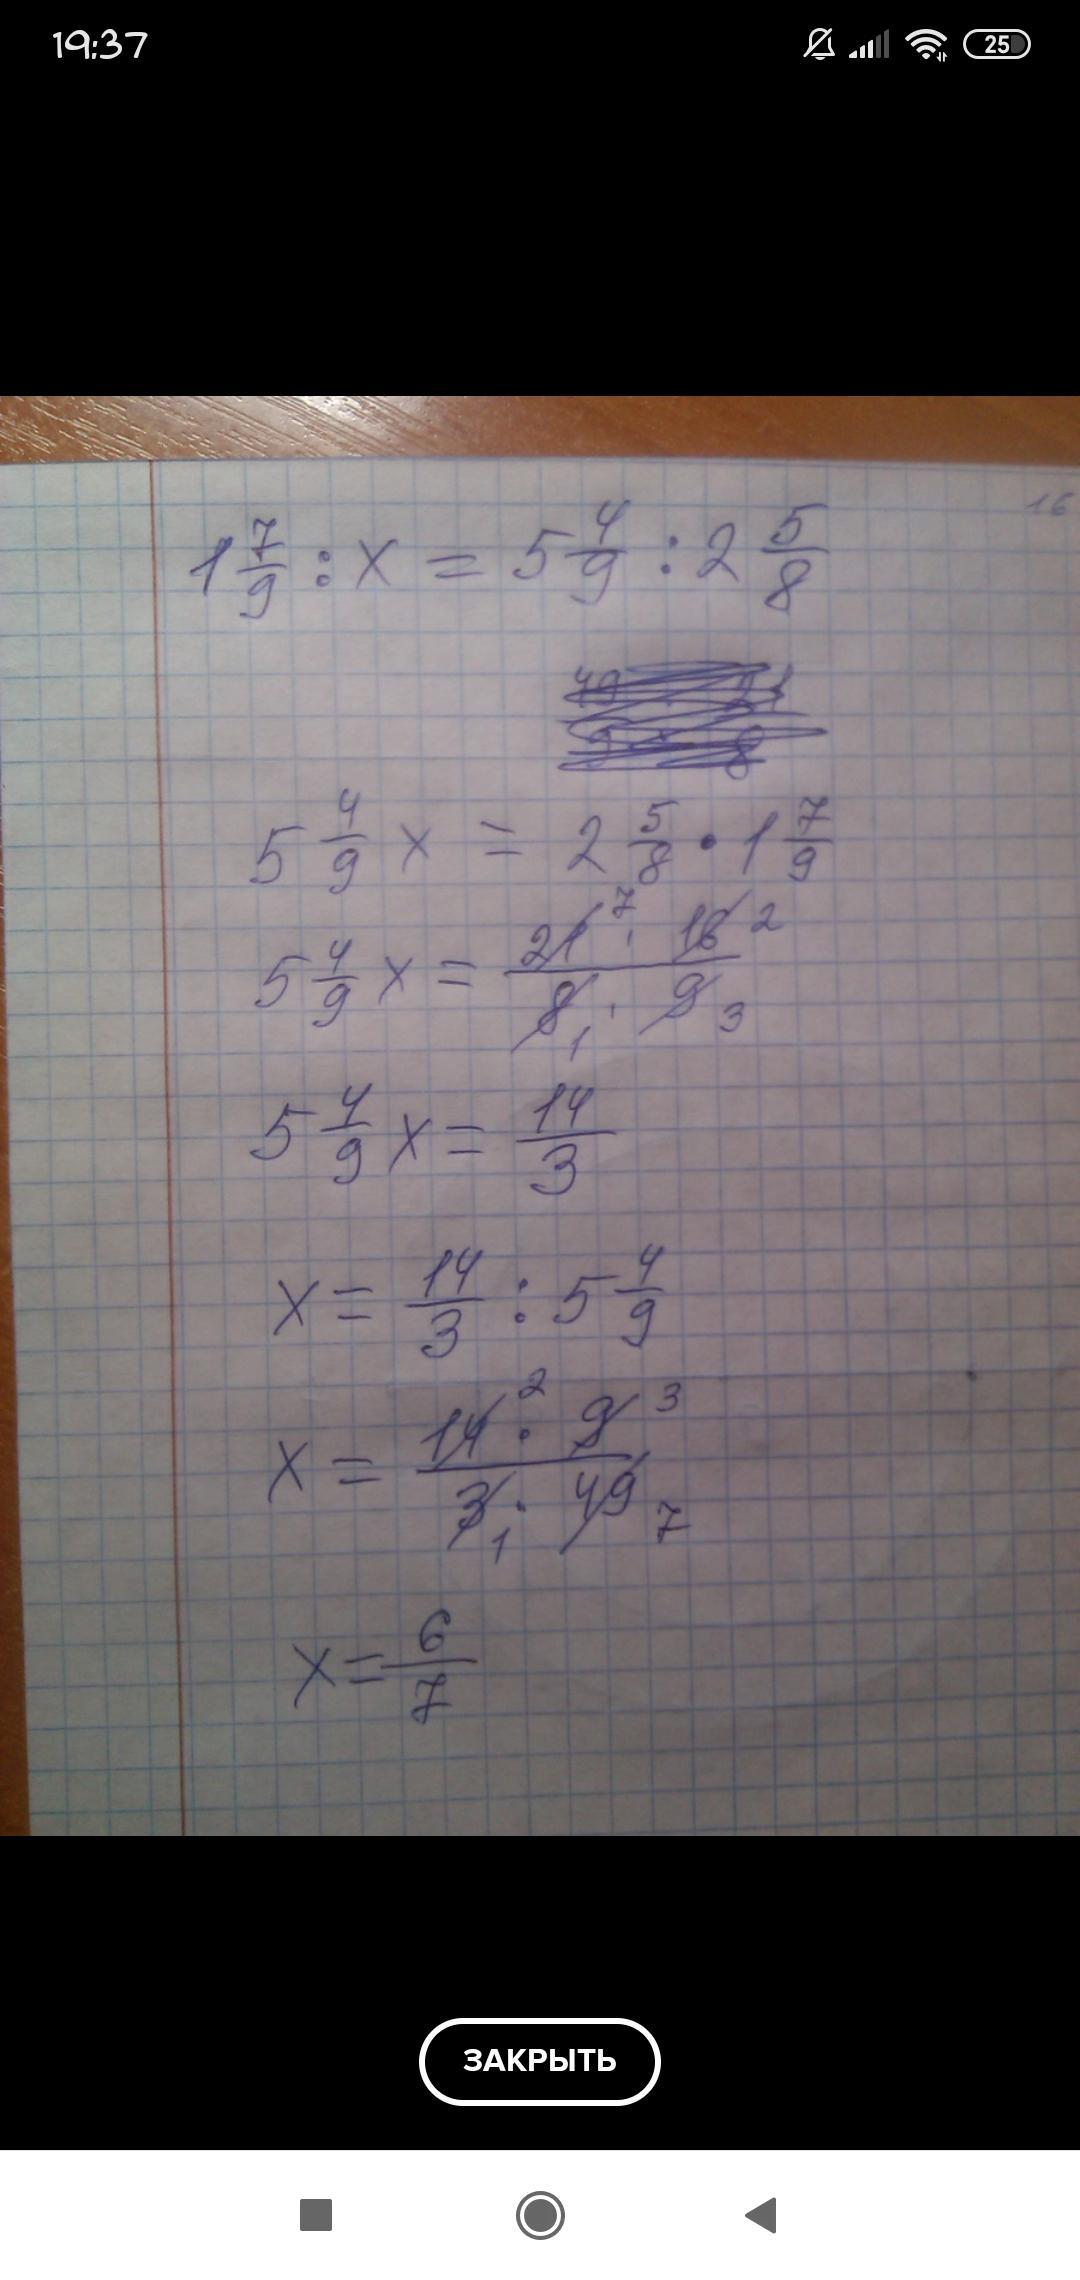 19:37
25
16
1 7/9 : x = 5 4/9 : 2 5/8
5 4/9 x = 2 5/8 · 1 7/9
5 4/9 x = 21 7 · 16 2 / 8 1 · 9 3
5 4/9 x = 14/3
x = 14/3 : 5 4/9
x = 14 2 · 9 3 / 3 1 · 49 7
x = 6/7
ЗАКРЫТЬ